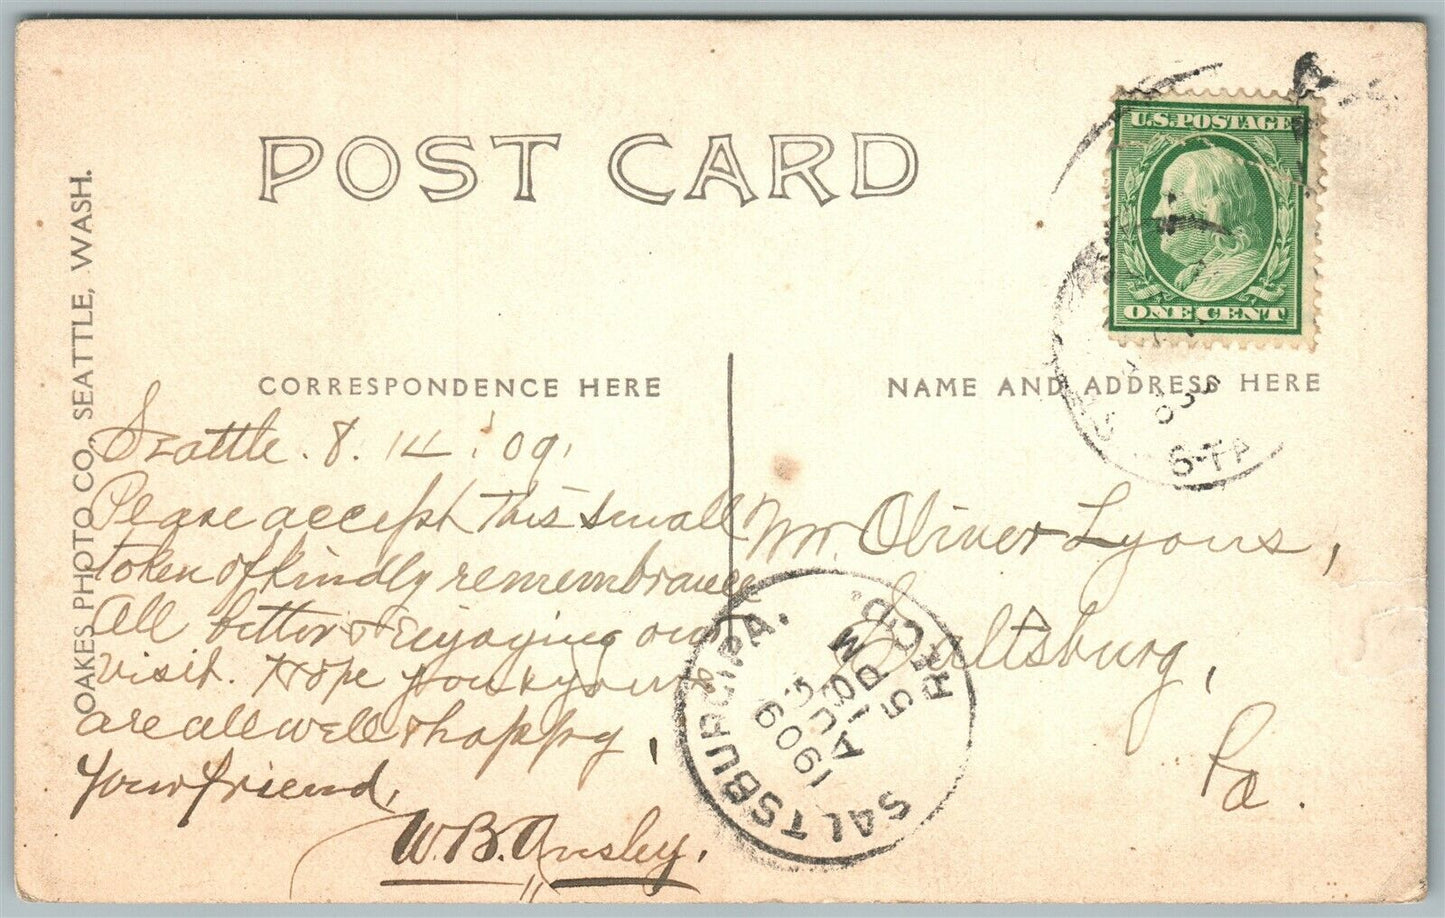 POST CARD
U.S.POSTAGE
ONE CENT
OAKES PHOTO CO., SEATTLE, WASH.
CORRESPONDENCE HERE
NAME AND ADDRESS HERE
6-PM
Seattle. 8. 14. '09.
Please accept this small
token of kindly remembrance
All better & Enjoying our
visit. Hope you & yours
are all well & happy,
Your friend,
W.B. Ansley.
Mr. Oliver Lyons,
Saltsburg,
Pa.
SALTSBURG, PA.
REC'D.
5 PM
AUG
1909